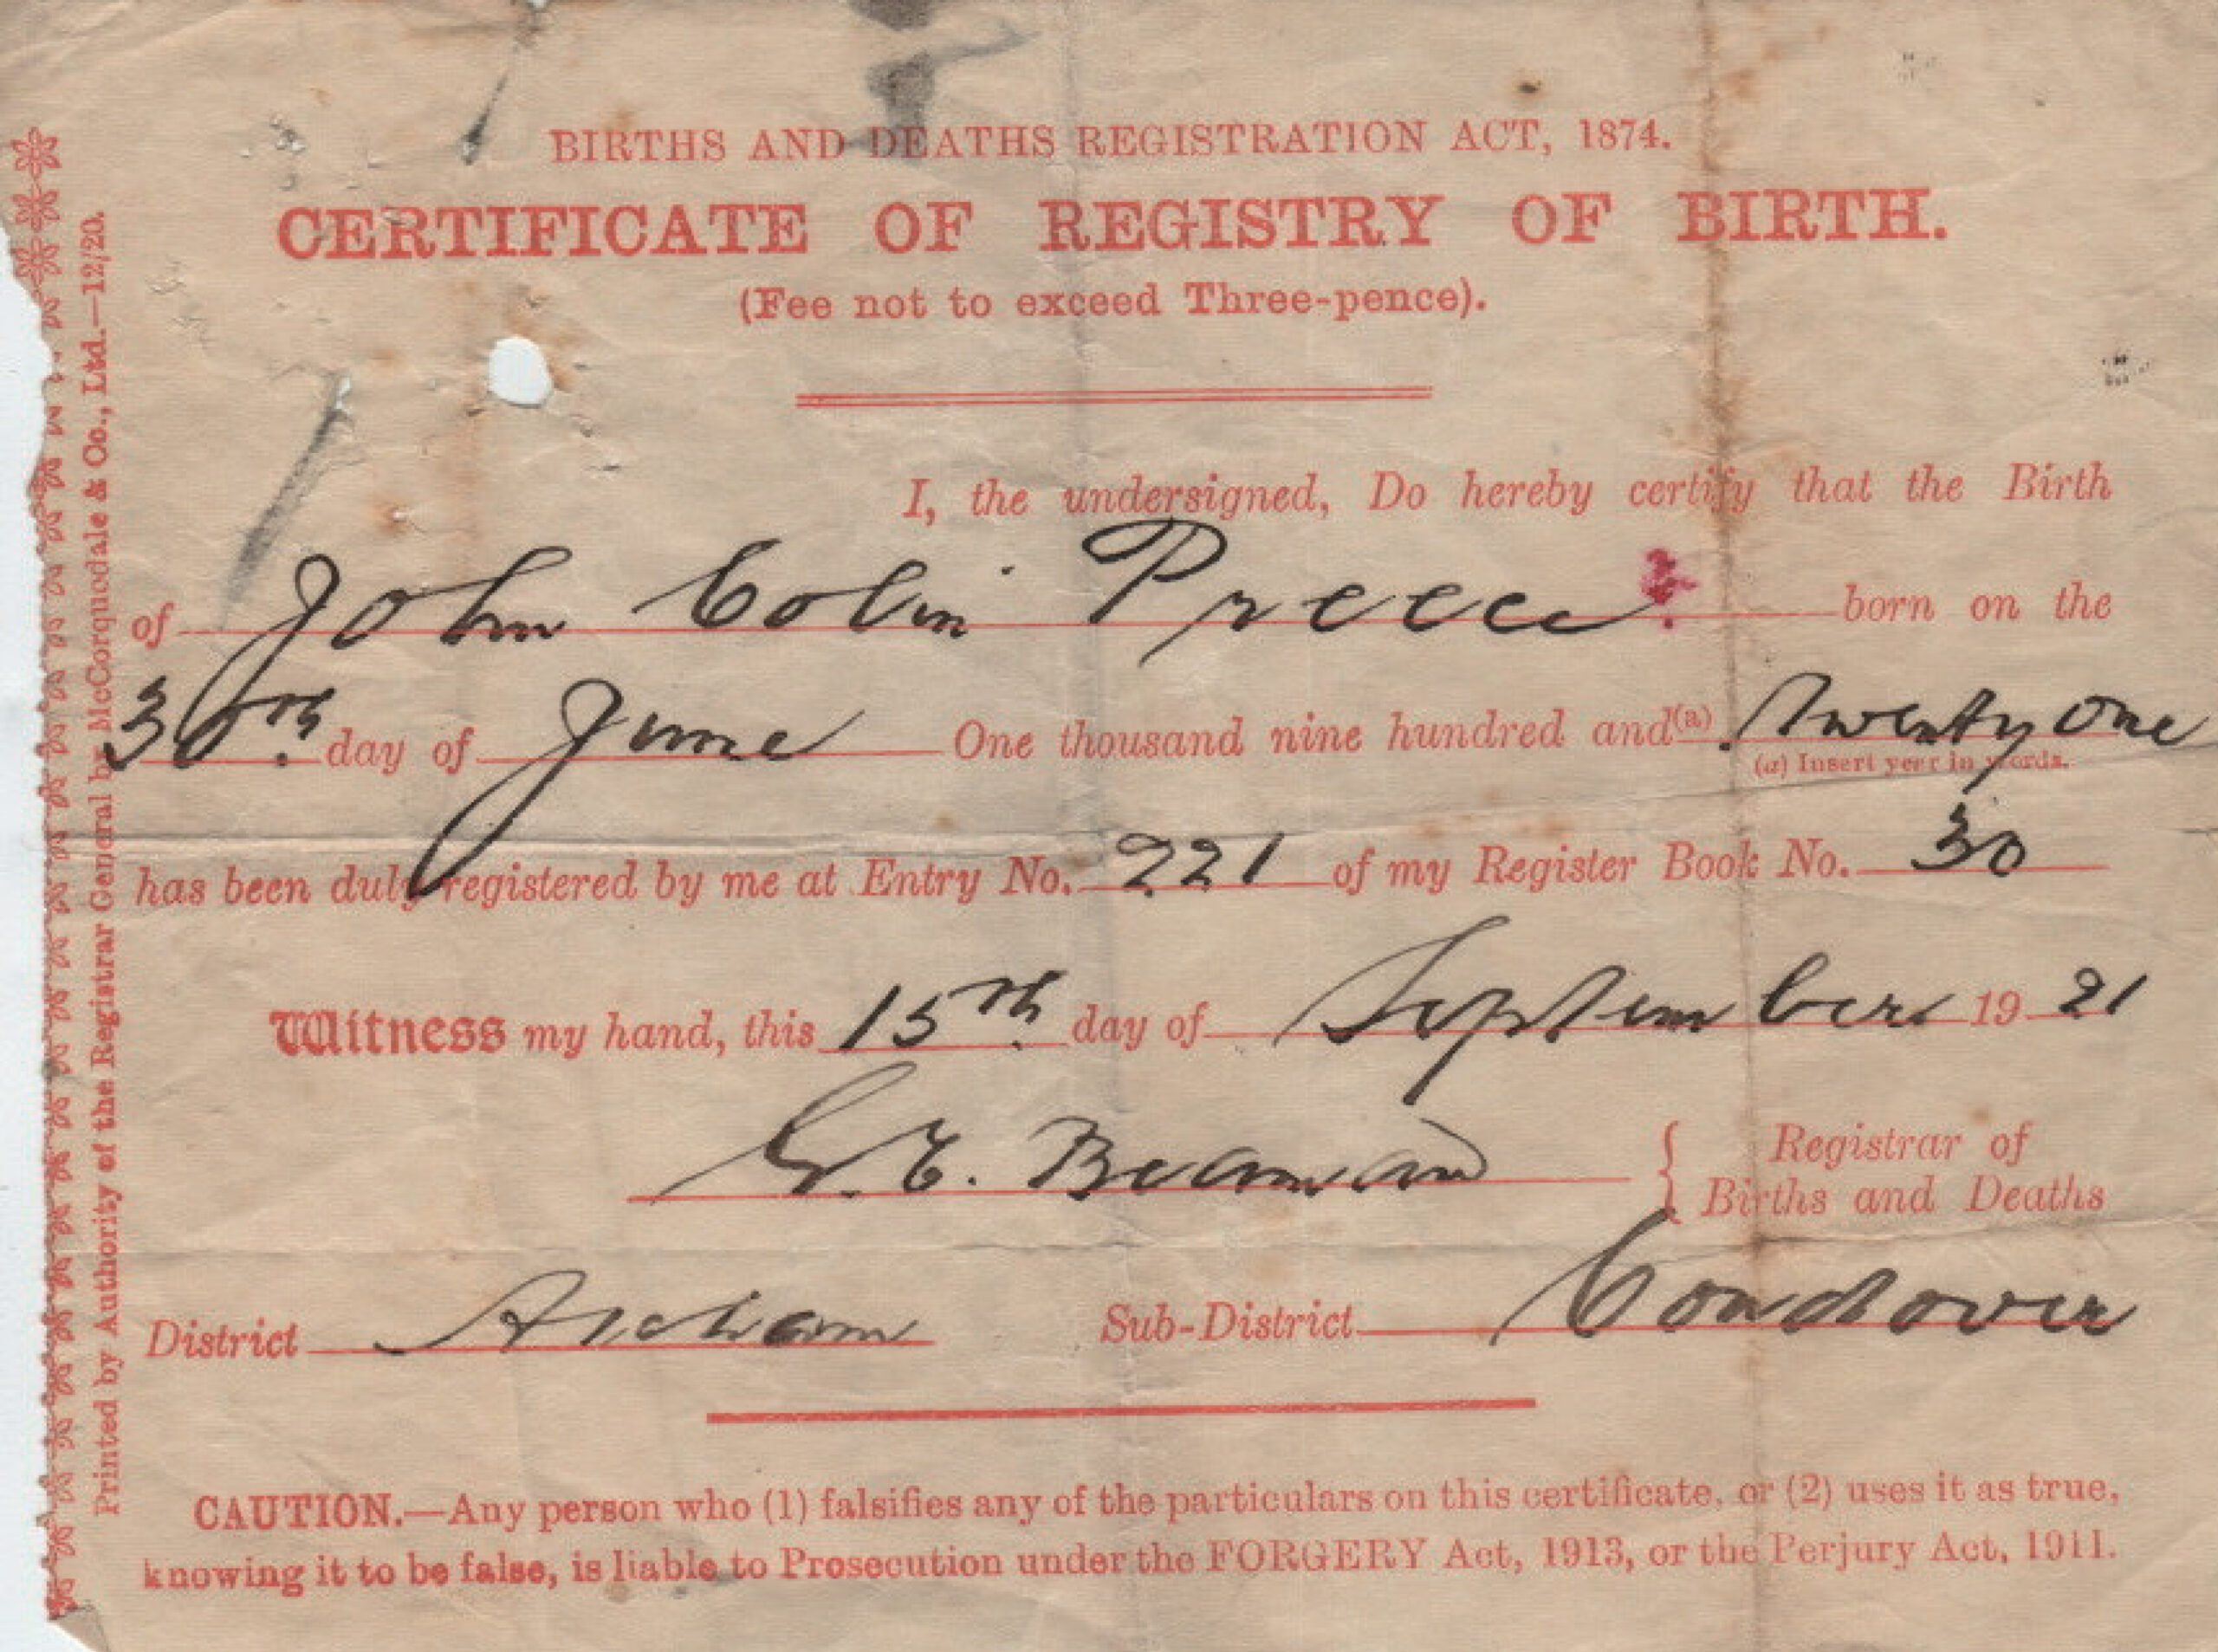 BIRTHS AND DEATHS REGISTRATION ACT, 1874.
CERTIFICATE OF REGISTRY OF BIRTH.
(Fee not to exceed Three-pence).
I, the undersigned, Do hereby certify that the Birth
of John Colin Preece. born on the
30th day of June One thousand nine hundred and (a) Twenty One
(a) Insert year in words.
has been duly registered by me at Entry No. 221 of my Register Book No. 30
Witness my hand, this 15th day of September 1921
G. E. Beaman { Registrar of
Births and Deaths
District Atcham Sub-District Condover
CAUTION.—Any person who (1) falsifies any of the particulars on this certificate, or (2) uses it as true,
knowing it to be false, is liable to Prosecution under the FORGERY Act, 1913, or the Perjury Act, 1911.
Printed by Authority of the Registrar General by McCorquodale & Co., Ltd.—12/20.